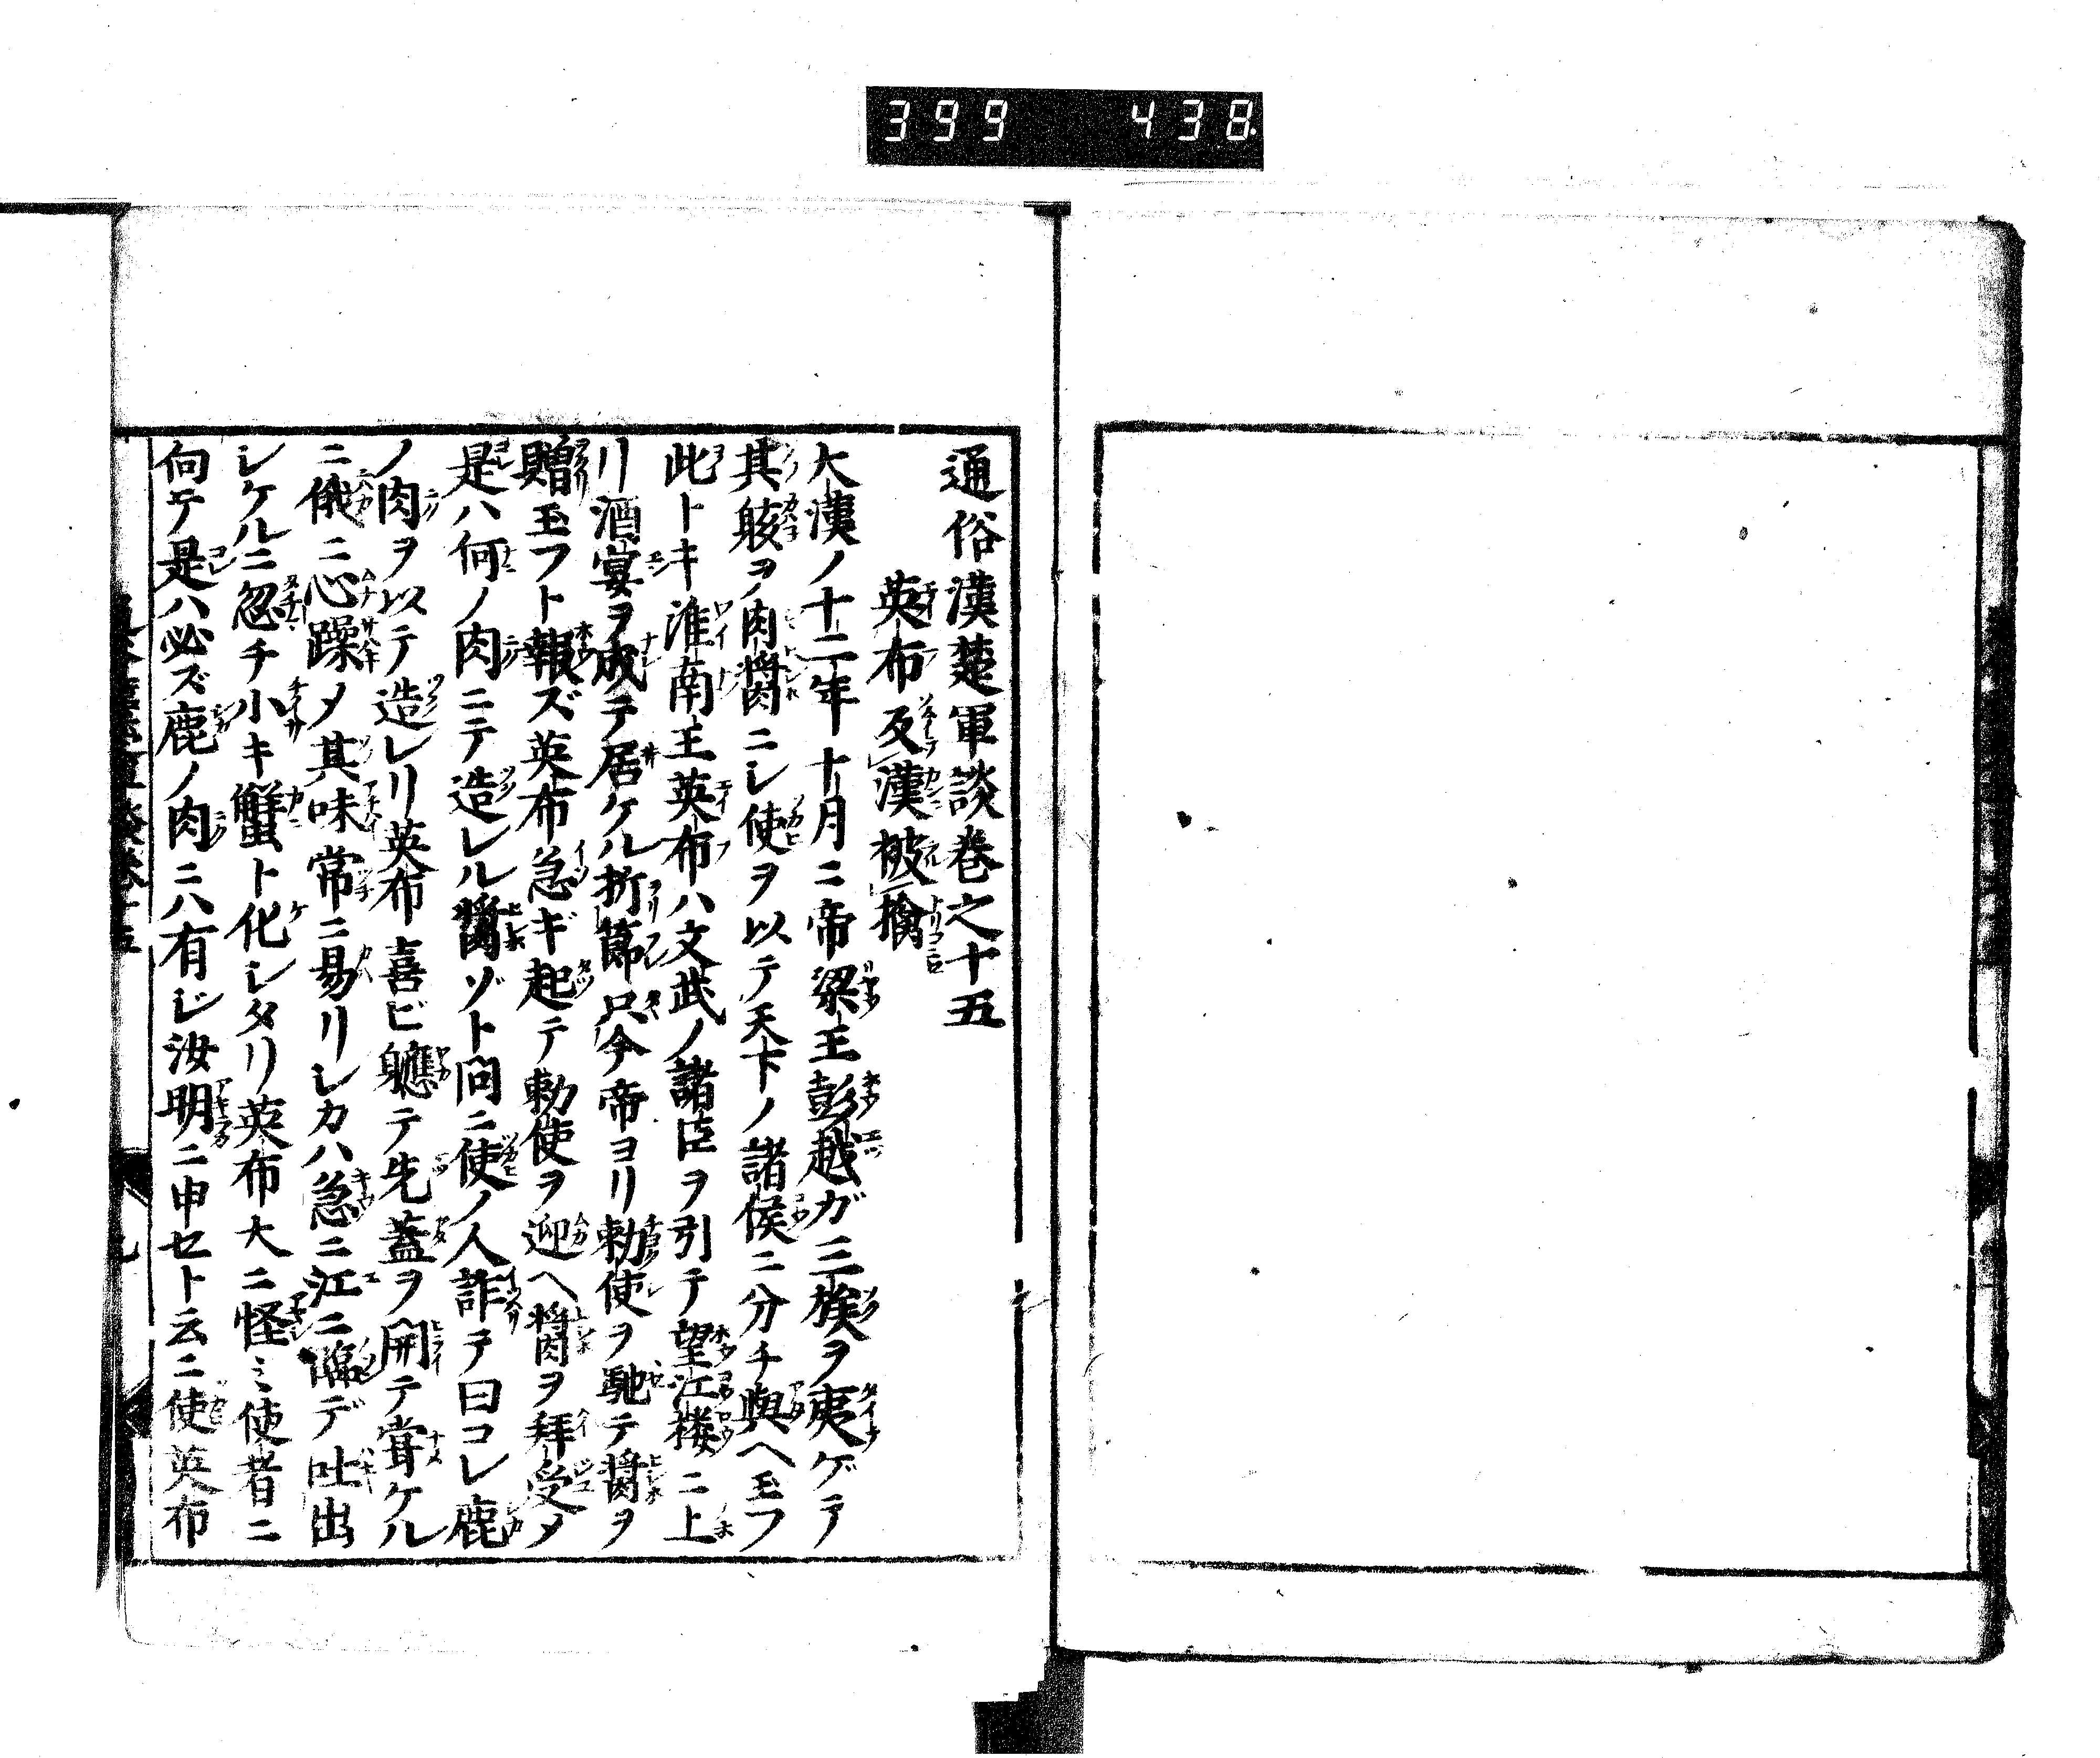 399 438
通俗漢楚軍談巻之十五
英布反漢被擒
大漢ノ十二年十月ニ帝梁王彭越ガ三族ヲ夷ゲテ
其骸ヲ肉醤ニシ使ヲ以テ天下ノ諸侯ニ分チ與ヘ玉フ
此トキ淮南王英布ハ文武ノ諸臣ヲ引テ望江樓ニ上
リ酒宴ヲ成テ居ケル折節只今帝ヨリ勅使ヲ馳テ醤ヲ
贈玉フト報ズ英布急ギ起テ勅使ヲ迎ヘ醤ヲ拜受メ
是ハ何ノ肉ニテ造レル醤ゾト問ニ使ノ人詐テ曰コレ鹿
ノ肉ヲ以テ造レリ英布喜ビ軈テ先蓋ヲ開テ甞ケル
ニ俄ニ心躁メ其味常ニ易リシカハ急ニ江ニ臨デ吐出
シケルニ忽チ小キ蟹ト化シタリ英布大ニ怪ミ使者ニ
向テ是ハ必ズ鹿ノ肉ニハ有ジ汝明ニ申セト云ニ使英布